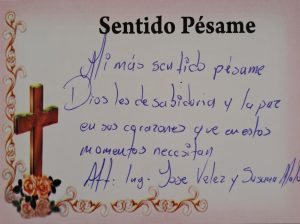 Sentido Pésame
Mi más sentido pésame
Dios les de sabiduria y la paz
en sus corazones que en estos
momentos necesitan
Att: Ing. Jose Velez y Susana